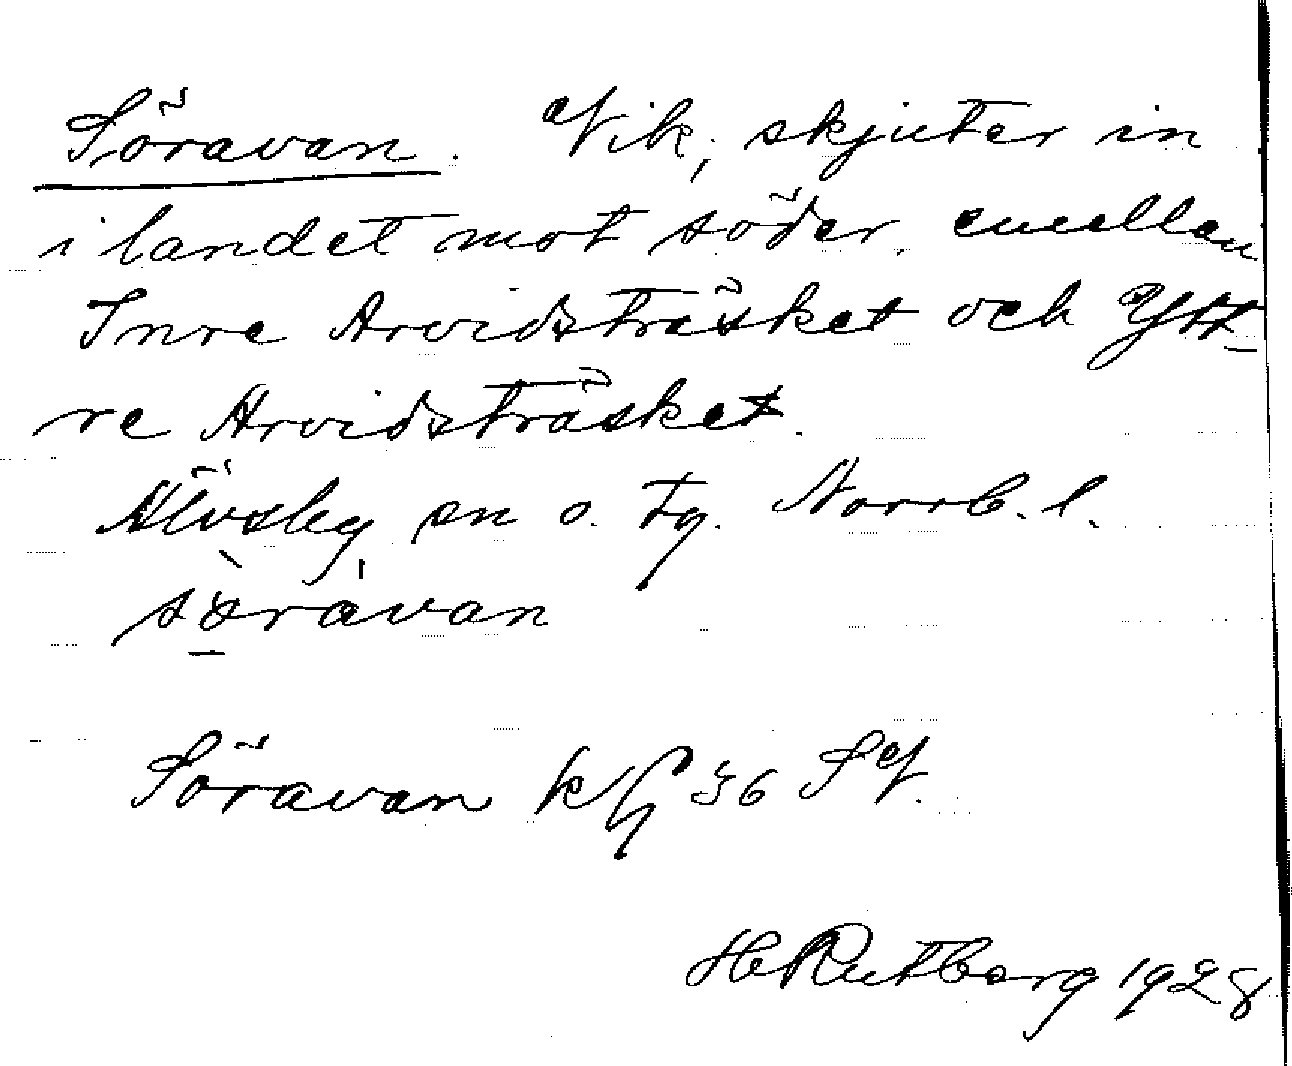 Söravan. Vik, skjuter in
i landet mot söder emellan
Inre Arvidsträsket och Ytt-
re Arvidsträsket.
Älvsby sn o. tg. Norrb. l.
Söravan 36 SV.
H Rutberg 1928